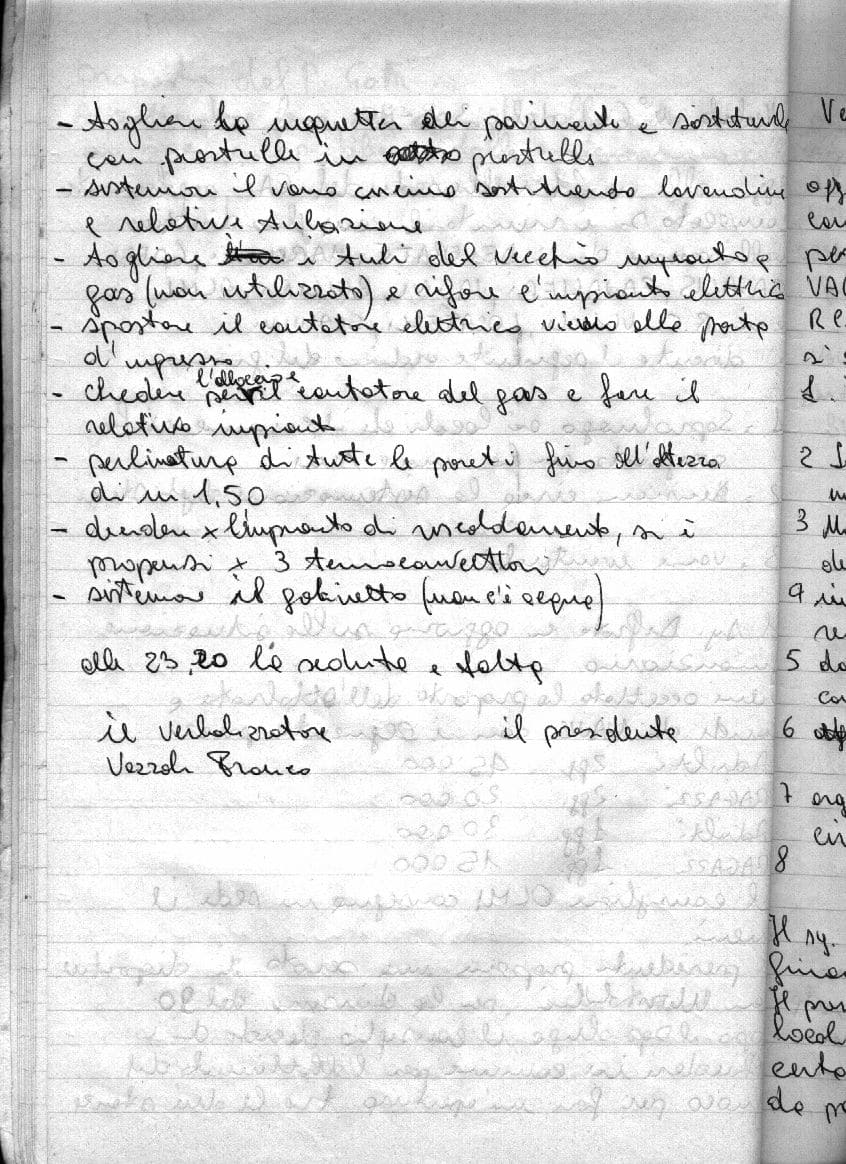 - togliere la moquetta dei pavimenti e sostituirla
con piastrelle in piastrelle
- sistemare il vano cucina sostituendo lavandino
e relative tubazione
- togliere i tubi del vecchio impianto a
gas (non utilizzato) e rifare l'impianto elettrico
- spostare il contatore elettrico vicino alla porta
d'ingresso
- chiedere l'allaccio per il contatore del gas e fare il
relativo impianto
- perlinatura di tutte le pareti fino all'altezza
di m 1,50
- decidere x l'impianto di riscaldamento, si è
propensi x 3 termoconvettori
- sistemare il gabinetto (non c'è acqua)
alle 23,20 la seduta è tolta
il verbalizzatore il presidente
Vezzoli Franco
Ve
VAL
si s
1.
2
3
4 in
5
6
7 org
8
Il sig.
Il pres
local
certo
da p